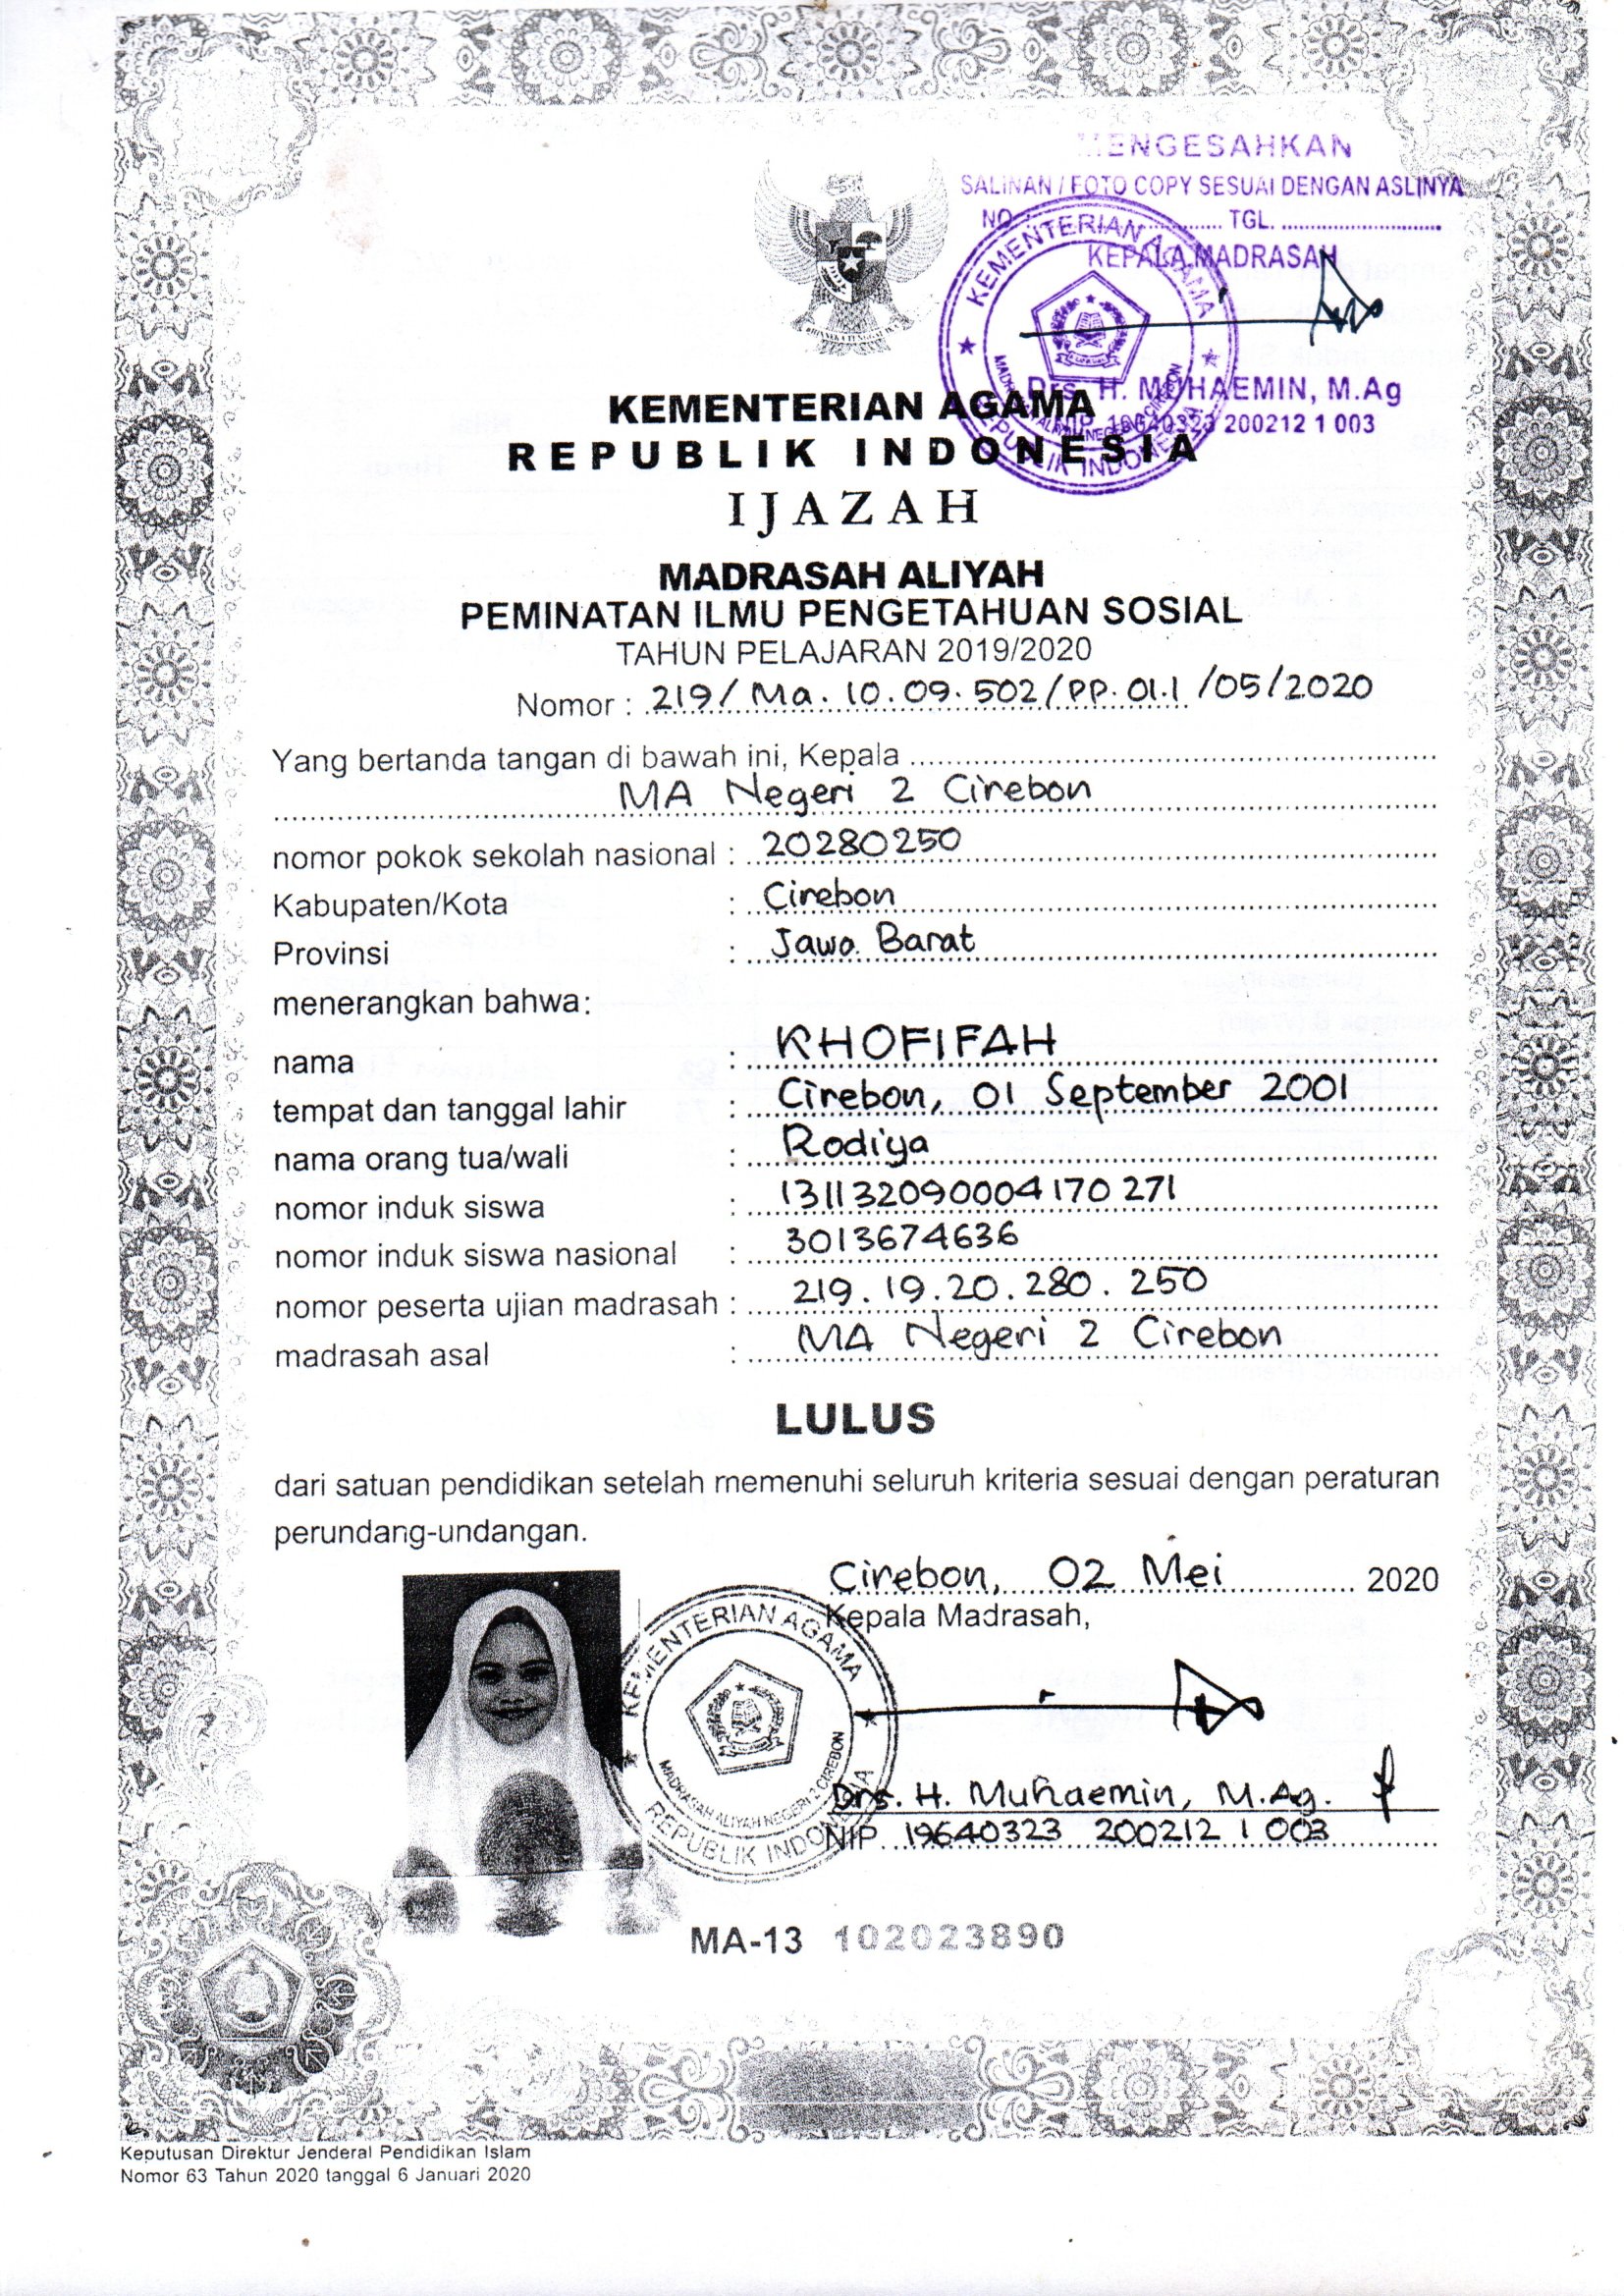 MENGESAHKAN
SALINAN / FOTO COPY SESUAI DENGAN ASLINYA
NO. ............ TGL. ............
KEPALA MADRASAH
KEMENTERIAN AGAMA
REPUBLIK INDONESIA
Drs. H. MUHAEMIN, M.Ag
NIP 19640323 200212 1 003
KEMENTERIAN AGAMA
REPUBLIK INDONESIA
IJAZAH
MADRASAH ALIYAH
PEMINATAN ILMU PENGETAHUAN SOSIAL
TAHUN PELAJARAN 2019/2020
Nomor : 219/Ma.10.09.502/PP.01.1/05/2020
Yang bertanda tangan di bawah ini, Kepala
MA Negeri 2 Cirebon
nomor pokok sekolah nasional : 20280250
Kabupaten/Kota : Cirebon
Provinsi : Jawa Barat
menerangkan bahwa:
nama : KHOFIFAH
tempat dan tanggal lahir : Cirebon, 01 September 2001
nama orang tua/wali : Rodiya
nomor induk siswa : 131132090004170271
nomor induk siswa nasional : 3013674636
nomor peserta ujian madrasah : 219.19.20.280.250
madrasah asal : MA Negeri 2 Cirebon
LULUS
dari satuan pendidikan setelah memenuhi seluruh kriteria sesuai dengan peraturan
perundang-undangan.
Cirebon, 02 Mei 2020
Kepala Madrasah,
KEMENTERIAN AGAMA
MADRASAH ALIYAH NEGERI 2 CIREBON
REPUBLIK INDONESIA
Drs. H. Muhaemin, M.Ag.
NIP. 19640323 200212 1 003
MA-13 102023890
Keputusan Direktur Jenderal Pendidikan Islam
Nomor 63 Tahun 2020 tanggal 6 Januari 2020